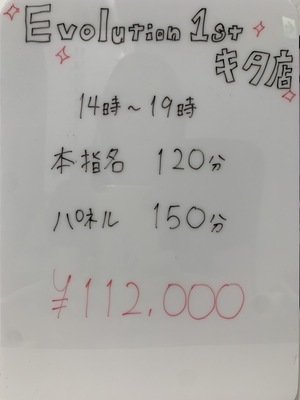 Evolution 1st
キタ店
14時～19時
本指名 120分
パネル 150分
¥112,000